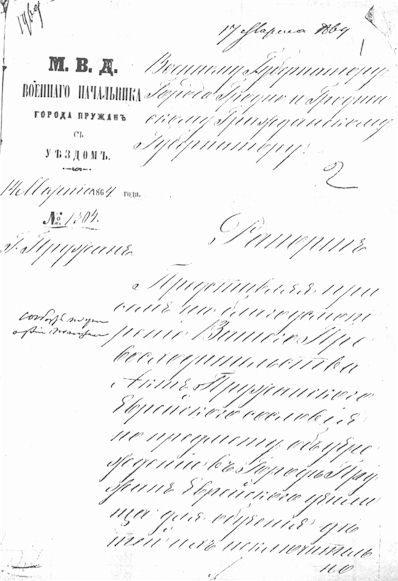 17 Марта 1864
М. В. Д.
ВОЕННАГО НАЧАЛЬНИКА
ГОРОДА ПРУЖАНЪ
СЪ
УѢЗДОМЪ.
14 Марта 1864 года.
№ 1304.
Г. Пружанъ
Военному Губернатору
Города Гродно и Гроднен
скому Гражданскому
Губернатору.
2
Рапортъ
Представляя при
семъ на благоусмот
рѣніе Вашего Пре
восходительства
Актъ Пружанскаго
Еврейскаго сословія
по предмету объ учре
жденіи въ Городѣ Пру
жанѣ Еврейскаго учили
ща для обученія дѣ
тей ихъ исключитель
но